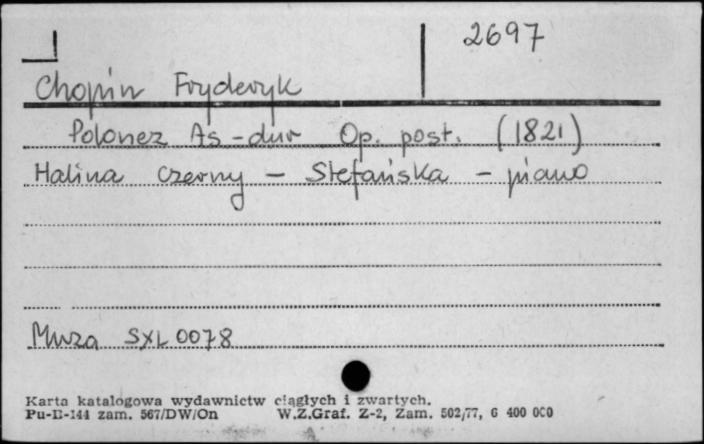 2697
Chopin Fryderyk
Polonez As-dur Op. post. (1821)
Halina Czerny - Stefańska - piano
Muza SXL 0078
Karta katalogowa wydawnictw ciągłych i zwartych.
Pu-II-144 zam. 567/DW/On W.Z.Graf. Z-2, Zam. 502/77, 6 400 000